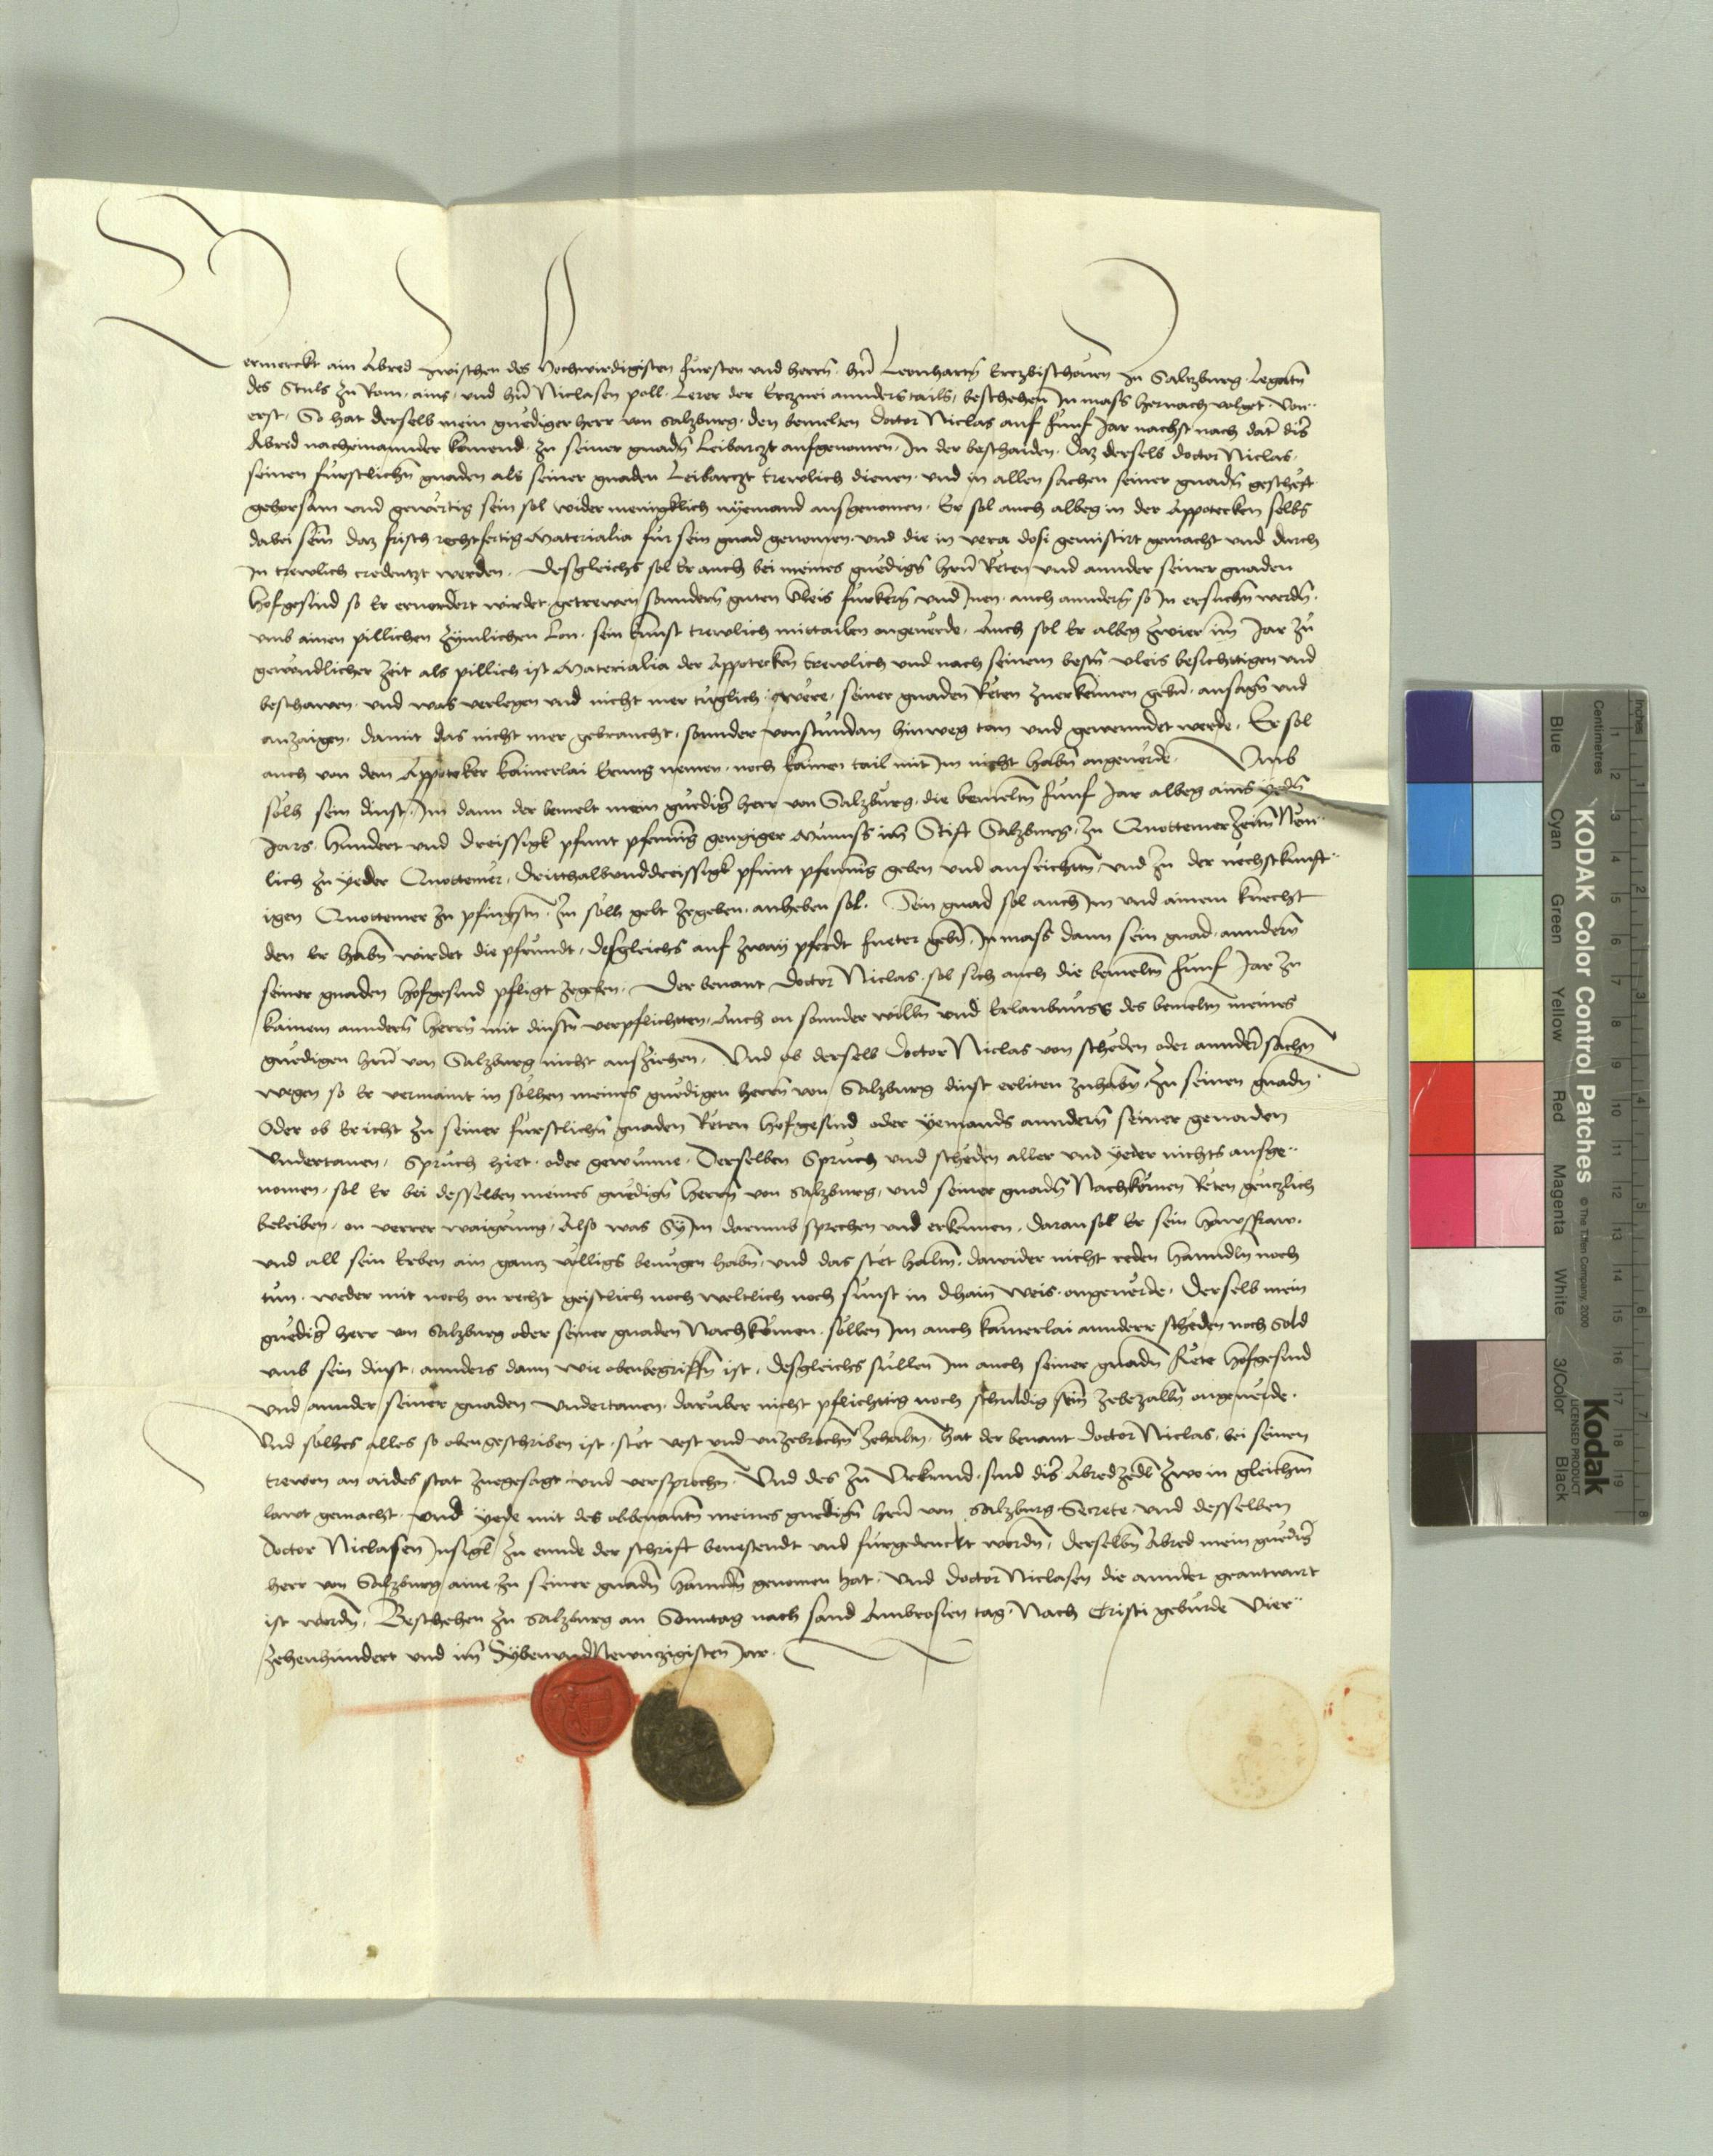 Vermerckt ain Abred zwischen des Hochwirdigisten fursten und herrn hrn Leonharten Erczbischouen zu Salczburg Legatn
des Stuls zu Rom ains und hrn Niclasen poll Lerer der Ercznei annders tails beschehen Inmass hernach volget Von
erst So hat derselb mein gnediger herr von Salczburg den bemelten Doctor Niclas auf Funf Jar nachst nach dat dis
Abred nacheinannder komend zu seiner gnadn Leibarczt aufgenomen In der beschaiden Daz derselb doctor Niclas
seinen furstlichn gnaden als seiner gnaden Leibarczt trewlich dienen und in allen sachen seiner gnadn gescheft
gehorsam und gewertig sein sol wider menigklich nyemand ausgenomen Er sol auch albeg in der Appotecken selbs
dabei sein daz frisch rechtfertig Materialia fur sein gnad genomen und die in vera dosi gemistirt gemacht und durch
In trewlich credentzt werden Desgleichs sol Er auch bei meines gnedigs hrn Reten und annder seiner gnaden
hofgesind so Er eruordert wirdet getrewen sonndern guten vleis furkern und Inen auch anndern so In ersuchn werdn
umb ainen pillichen zymlichen Lon sein kunst trewlich mittailen ongeuerde Auch sol Er albeg zwier im Jar zu
gewondlicher zeit als pillich ist Materialia der Appotecken trewlich und nach seinem bestn vleis besichttigen und
beschawen und was verlegen und nicht mer tuglich were seiner gnaden Reten zuerkennen gebn ansagn und
anzaigen damit das nicht mer gebraucht sonnder vonstundan hinweg tan und gewenndet werde Er sol
auch von dem Appoteker kainerlai Erung nemen noch kainen tail mit Im nicht habn ongeuerde Umb
solh sein dinst Im dann der bemelt mein gnedig herr von Salzburg die bemeltn Funf Jar albeg ains yedn
Jars hundert und dreissigk pfunt pfennig gengiger Munss im Stift Salzburg zu Quottemer zeitn Nem
lich zu yeder Quottemer dritthalbunddreissigk pfunt pfennig geben und ausrichttn und zu der nechstkunft
igen Quottemer zu pfingstn Im solh gelt zegeben anheben sol Sein gnad sol auch Im und ainem knecht
den Er habn wirdet die pfrundt desgleichs auf zway pferdt fueter gebn Inmass dann sein gnad anndern
seiner gnaden hofgesind pfligt zegeben Der benant doctor Niclas sol sich auch die bemeltn Funf Jar zu
kainem anndern herrn mit dinstn verpflichtten Auch on sonnder willn und Erlaubnuss des bemeltn meines
gnedigen hrn von Salzburg nicht ausziehen Und ob derselb Doctor Niclas von scheden oder annder sachn
wegen so Er vermaint in solhen meines gnedigen herrn von Salzburg dinst erliten zuhabn zu seinen gnadn
Oder ob Er icht zu seiner furstlichn gnaden Reten hofgesind oder yemands anndern seiner genaden
Undertanen Spruch hiet oder gewunne Derselben Spruch und scheden aller und yeder nichts ausge
nomen sol Er bei desselben meines gnedign herrn von Salzburg und seiner gnadn Nachkomen Reten genczlich
beleiben on verrer waigrung Also was Sy Im darumb sprechen und erkennen daran sol Er sein hawsfraw
und all sein Erben ain gancz volligs benugen habn und das stet haltn dawider nicht reden hanndln noch
tun weder mit noch on recht geistlich noch weltlich noch sunst in dhain weis ongeuerde Derselb mein
gnedig herr von Salzburg oder seiner gnaden Nachkomen sollen Im auch kainerlai annderr scheden noch Sold
umb sein dinst annders dann wie obenbegriffn ist desgleichs sullen Im auch seiner gnadn Rete hofgesind
und annder seiner gnaden Undertanen daruber nicht pflichttig noch schuldig sein zebezalln ongeuerde
Und solhes alles so obengeschriben ist stet vest und unzebrochn zehaltn hat der benant doctor Niclas bei seinen
trewen an aides stat zuegesagt und versprochn Und des zu Urkund sind dis Abredzedl zwo in gleichm
lawt gemacht und yede mit des obbenantn meines gnedign hrn von Salzburg Secrete und desselben
Doctor Niclasen Insigl zu ennde der schrift beuestendt und furgedruckt wordn derselbn Abred mein gnedig
herr von Salzburg aine zu seiner gnadn hanndn genomen hat Und doctor Niclasen die annder geantwurt
ist wordn Beschehen zu Salzburg an Sonntag nach sand Ambrosien tag Nach Cristi geburde Vier
zehenhundert und im Sybenundnewnczigisten Jar
KODAK Color Control Patches
© The Tiffen Company, 2000
Kodak
LICENSED PRODUCT
Inches
Centimetres
Blue
Cyan
Green
Yellow
Red
Magenta
White
3/Color
Black